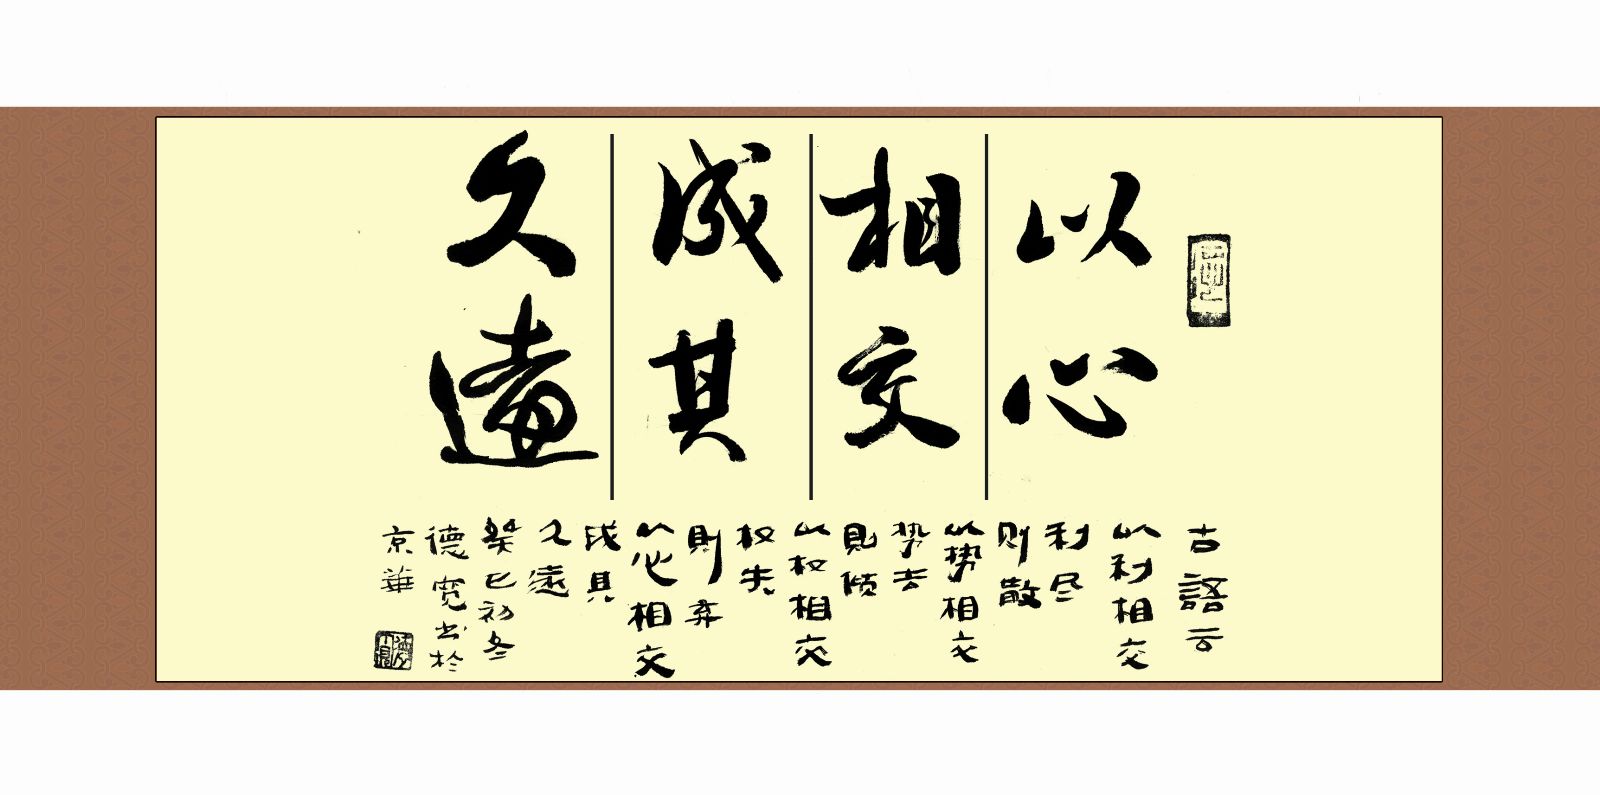 以心
相交
成其
久遠
古語云
以利相交
利尽
则散
以势相交
势去
則倾
以权相交
权失
則弃
以心相交
成其
久遠
癸巳初冬
德宽书於
京華